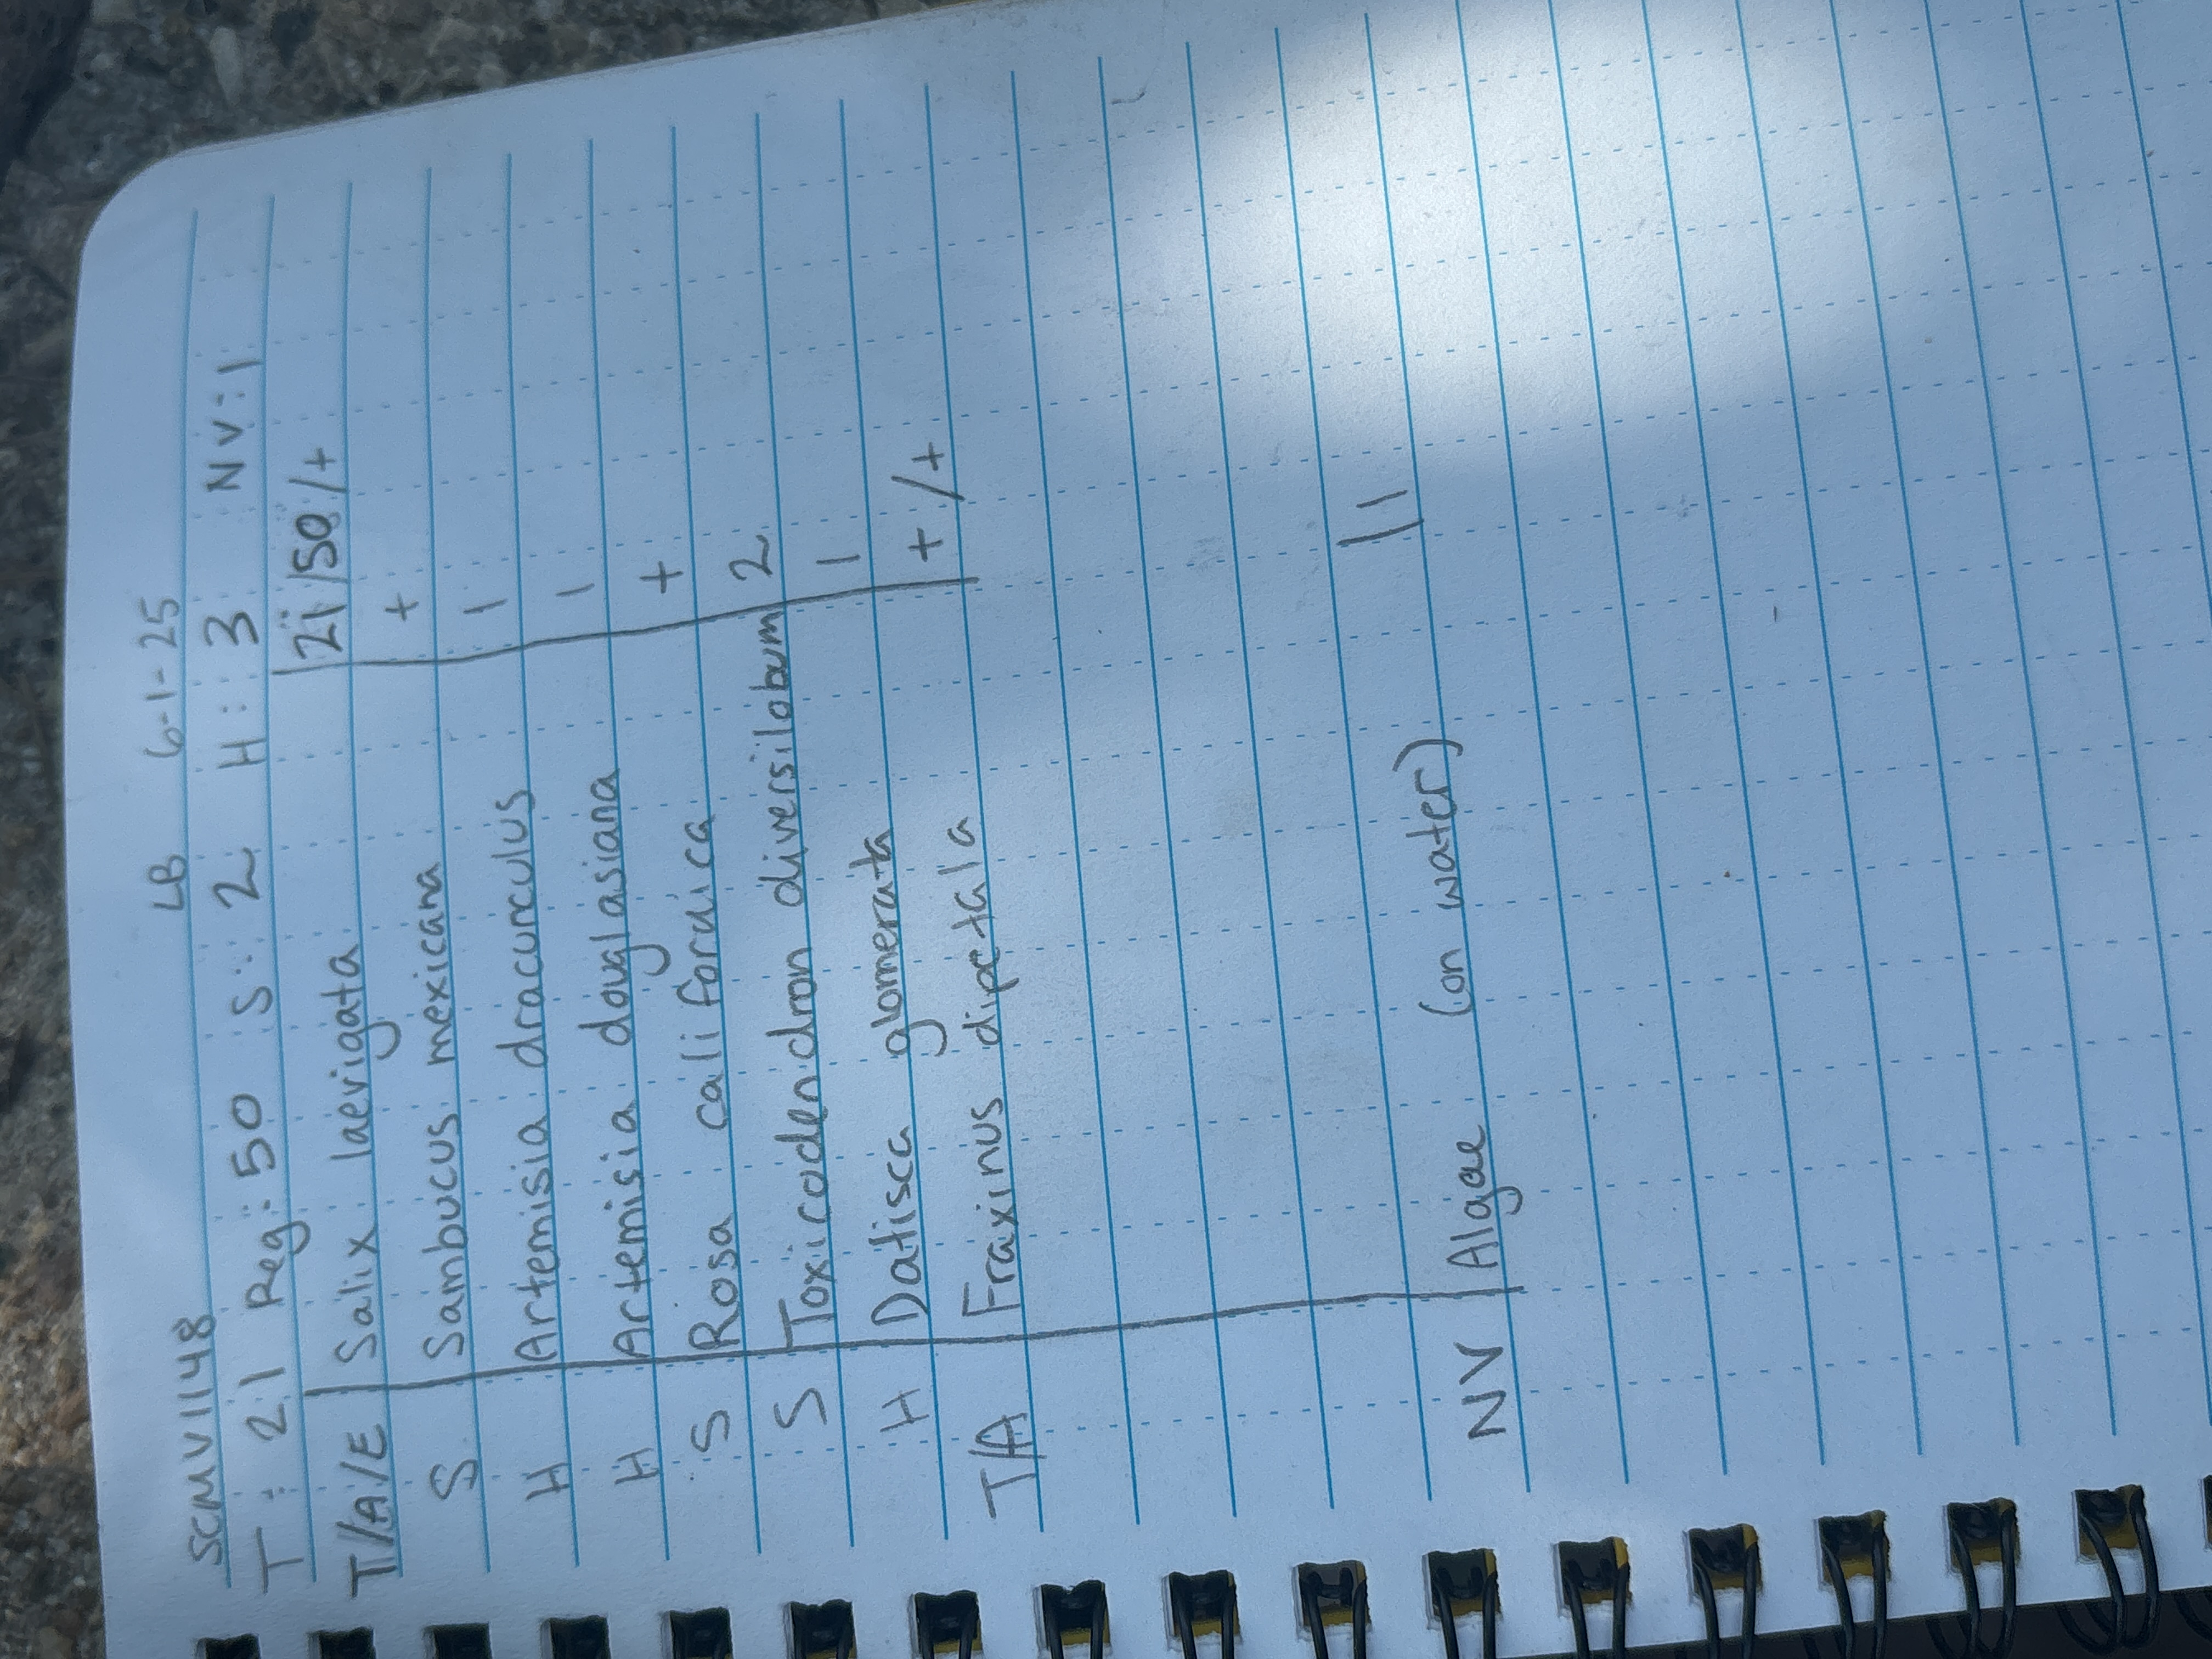 SCMV1148 LB 6-1-25
T: 21 Reg: 50 S: 2 H: 3 NV: 1
T/A/E Salix laevigata 21/50/+
S Sambucus mexicana +
H Artemisia dracunculus 1
H Artemisia douglasiana 1
S Rosa californica +
S Toxicodendron diversilobum 2
H Datisca glomerata 1
T/A Fraxinus dipetala +/+
NV Algae (on water) 11